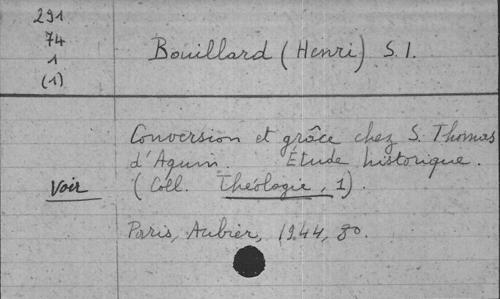 291
74
1
(1)
Bouillard (Henri) S.I.
Conversion et grâce chez S. Thomas
d'Aquin. Étude historique.
Voir (Coll. Théologie, 1).
Paris, Aubier, 1944, 8o.